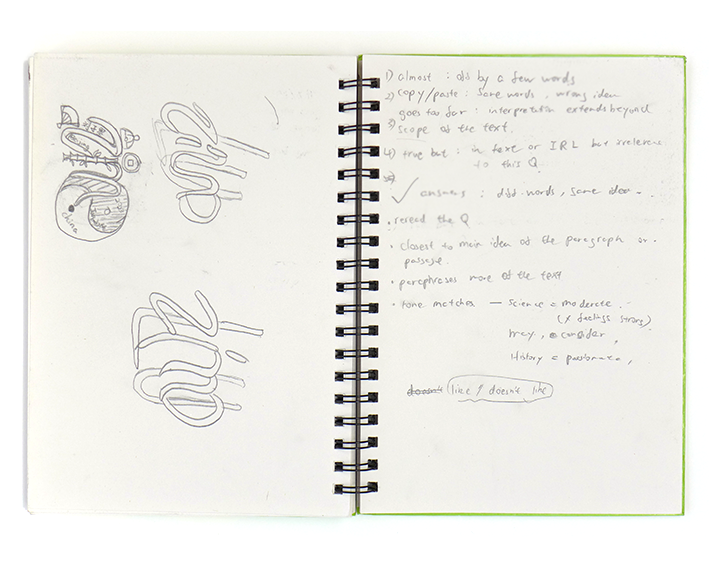 china
1) almost : odd by a few words
2) copy/paste : same words, wrong idea
goes too far : interpretation extends beyond
3) scope of the text.
4) true but : in text or IRL but irrelevant
to this Q.
✓ answers : odd words, same idea.
• reread the Q
• closest to main idea of the paragraph or
passage.
• paraphrases more of the text
• tone matches — science = moderate.
feelings strong)
may, consider,
History = passionate,
doesn't like / doesn't like